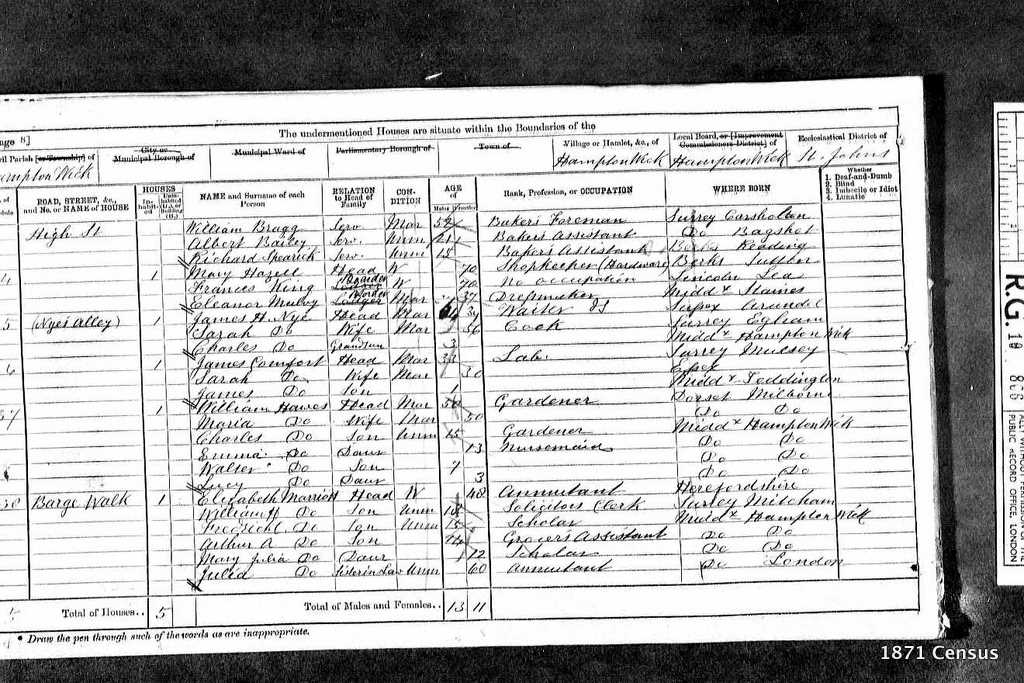 age 8]
The undermentioned Houses are situate within the Boundaries of the
il Parish [or Township] of City or Municipal Borough of Municipal Ward of Parliamentary Borough of Town of Village or Hamlet, &c., of Local Board, or [Improvement Commissioners District] of Ecclesiastical District of
ampton Wick Hampton Wick Hampton Wick St. Johns
ROAD, STREET, &c., and No. or NAME of HOUSE HOUSES Inhabited Uninhabited (U.), or Building (B.) NAME and Surname of each Person RELATION to Head of Family CONDITION AGE of Males Females Rank, Profession, or OCCUPATION WHERE BORN Whether 1. Deaf-and-Dumb 2. Blind 3. Imbecile or Idiot 4. Lunatic
High St William Bragg Serv Mar 52 Bakers Foreman Surrey Carshalton
Albert Bailey Serv. Unm 21 Bakers Assistant Do Bagshot
Richard Spearick Serv. Unm 15 Bakers Assistant Berks Reading
1 Mary Hazell Head W 70 Shopkeeper (Hardware) Berks Sutton
Frances King Boarder W 70 No occupation Lincoln Lea
Eleanor Mulvy Boarder Mar 37 Dressmaker Midd x Staines
5 (Nyes Alley) 1 James H. Nye Head Mar 54 Waiter Sussex Arundel
Sarah Do Wife Mar 56 Cook Surrey Egham
Charles Do Grandson 3 Midd x Hampton Wick
6 1 James Comfort Head Mar 33 Lab. Surrey Mulsey
Sarah Do Wife Mar 30 Essex
James Do Son 1 Midd x Teddington
37 1 William Hawes Head Mar 50 Gardener Dorset Milborne
Maria Do Wife Mar 50 Do Do
Charles Do Son Unm 15 Gardener Midd x Hampton Wick
Emma Do Daur 13 Nursemaid Do Do
Walter Do Son 7 Do Do
Lucy Do Daur 3 Do Do
38 Barge Walk 1 Elizabeth Marriott Head W 48 Annuitant Herefordshire
William H Do Son Unm 18 Solicitors Clerk Surrey Mitcham
Fredrick Do Son Unm 15 Scholar Midd x Hampton Wick
Arthur A Do Son 14 Grocers Assistant Do Do
Mary Julia Do Daur 12 Scholar Do Do
Julia Do Sister in Law Unm 60 Annuitant Do London
Total of Houses.. 5 Total of Males and Females.. 13 11
* Draw the pen through such of the words as are inappropriate.
R.G. 10
866
PUBLIC RECORD OFFICE, LONDON
1871 Census